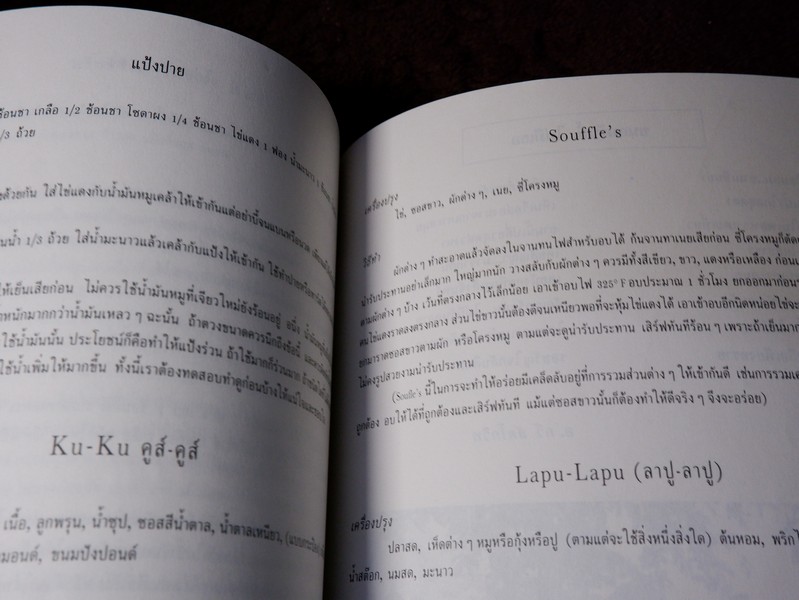 แป้งปาย
ช้อนชา เกลือ 1/2 ช้อนชา โซดาผง 1/4 ช้อนชา ไข่แดง 1 ฟอง น้ำมะนาว 1
1/3 ถ้วย
ด้วยกัน ใส่ไข่แดงกับน้ำมันหมูเคล้าให้เข้ากันแต่อย่าบี้จนแบนหรือนวด
น้ำ 1/3 ถ้วย ใส่น้ำมะนาวแล้วเคล้ากับแป้งให้เข้ากัน
ให้เย็นเสียก่อน ไม่ควรใช้น้ำมันหมูที่เจียวใหม่ยังร้อนอยู่ อนึ่ง
หนักมากกว่าน้ำมันเหลว ๆ ฉะนั้น ถ้าตวงขนาดควรนึกถึงข้อนี้
ใช้น้ำมันนั้น ประโยชน์ก็คือทำให้แป้งร่วน ถ้าใช้มากก็ร่วนมาก
ใช้น้ำเพิ่มให้มากขึ้น ทั้งนี้เราต้องทดสอบทำดูก่อนบ้างให้แน่ใจ
Ku-Ku คูส์-คูส์
เนื้อ, ลูกพรุน, น้ำซุป, ซอสสีน้ำตาล, น้ำตาลเหนียว,
มอนด์, ขนมปังปอนด์
Souffle's
เครื่องปรุง
ไข่, ซอสขาว, ผักต่าง ๆ, เนย, ซี่โครงหมู
วิธีทำ
ผักต่าง ๆ ทำสะอาดแล้วจัดลงในจานทนไฟสำหรับอบได้ ก้นจานทาเนยเสียก่อน ซี่โครงหมูก็ตัด
น่ารับประทานอย่าเล็กมาก ใหญ่มากนัก วางสลับกับผักต่าง ๆ ควรมีทั้งสีเขียว, ขาว, แดงหรือเหลือง ก่อน
ตามผักต่าง ๆ บ้าง เว้นที่ตรงกลางไว้เล็กน้อย เอาเข้าอบไฟ 325° F อบประมาณ 1 ชั่วโมง ยกออกมาก่อน
คนไข่แดงราดลงตรงกลาง ส่วนไข่ขาวนั้นต้องตีจนเหนียวพอที่จะหุ้มไข่แดงได้ เอาเข้าอบอีกนิดหน่อยไข่จะ
ยกมาราดซอสขาวตามผัก หรือโครงหมู ตามแต่จะดูน่ารับประทาน เสิร์ฟทันทีร้อน ๆ เพราะถ้าเย็นมาก
ไม่คงรูปสวยงามน่ารับประทาน
(Soufle's นี้ในการจะทำให้อร่อยมีเคล็ดลับอยู่ที่การรวมส่วนต่าง ๆ ให้เข้ากันดี เช่นการรวม
ถูกต้อง อบให้ได้ที่ถูกต้องและเสิร์ฟทันที แม้แต่ซอสขาวนั้นก็ต้องทำให้ดีจริง ๆ จึงจะอร่อย)
Lapu-Lapu (ลาปู-ลาปู)
เครื่องปรุง
ปลาสด, เห็ดต่าง ๆ หมูหรือกุ้งหรือปู (ตามแต่จะใช้สิ่งหนึ่งสิ่งใด) ต้นหอม, พริก
น้ำสต๊อก, นมสด, มะนาว